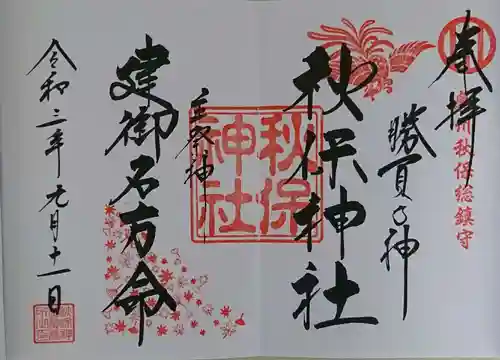 奉拝
州秋保総鎮守
勝負の神
秋保神社
秋保
神社
主祭神
建御名方命
令和三年元月十一日